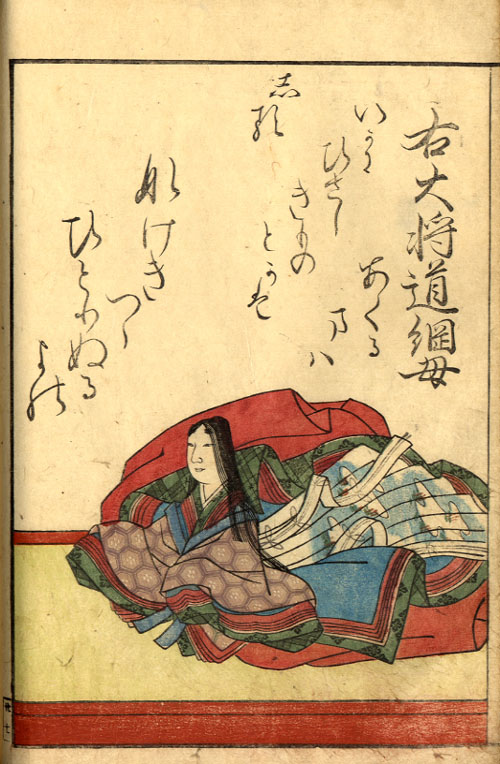 右大将道綱母
なけき
つゝ
ひとりぬる
よの
あくる
まハ
いかに
ひさし
きもの
とかは
志る